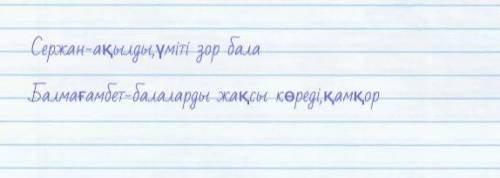 Сержан-ақылды,үміті зор бала
Балмағамбет-балаларды жақсы көреді,қамқор